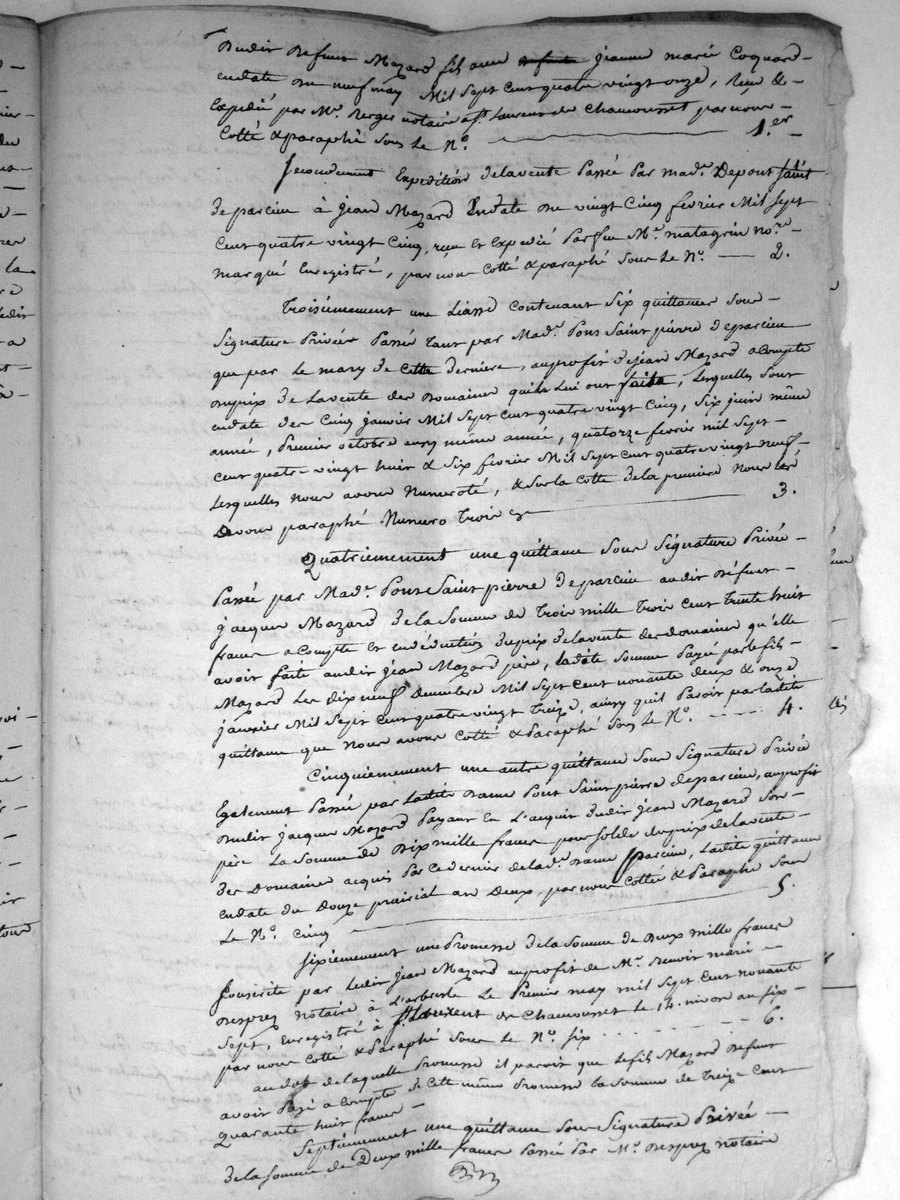 Dudit Defunt Mazard fils avec jeanne marie Coquard
en date du neuf may Mil sept cent quatre vingt onze, Recu &
Expedié par Mr. Berger notaire a St. Laurent de Chamousset par nous
Cotté & paraphé sous le No. 1.er
Secondement Expedition de la vente Passée Par mad.e Depont saint
de parcieu à Jean Mazard En date du vingt Cinq fevrier Mil sept
Cent quatre vingt Cinq, recu Et Expedié Par feu Mr. matagrin no.re
marqué Enregistré, par nous Cotté & paraphé sous le No. 2.
Troisiemement une Liasse Contenant six quittances sous
signature Privée Passée tant par Mad.e Pons Saint pierre de parcieu
que par le mary de cette derniere, au profit de Jean Mazard a Compte
du prix de La vente des Domaines qu'ils Lui ont faite, Lesquelles sont
en date des Cinq janvier Mil sept cent quatre vingt Cinq, six juin même
année, Premier octobre même année, quatorze fevrier mil sept
cent quatre vingt huit & six fevrier Mil sept cent quatre vingt neuf
Lesquelles nous avons Numeroté, & sur la Cotte de la premiere nous les
avons paraphé Numero Trois cy 3.
Quatriemement une quittance sous signature Privée
Passée par Mad.e Pons Saint pierre de parcieu audit Defunt
jacques Mazard de la somme de Trois mille Trois cent Trente huit
francs a Compte Et en deduction du prix de la vente des domaines qu'elle
avoit faite audit jean Mazard père, ladite somme Payée par le fils
Mazard les dix neuf decembre Mil sept cent nonante deux & onze
janvier Mil sept cent quatre vingt Treize, ainsy qu'il Paroit par ladite
quittance que nous avons Cotté & Paraphé sous le No. 4.
Cinquiemement une autre quittance sous signature Privée
Egalement Passée par Ladite Dame Pons Saint pierre de parcieu, au profit
dudit jacques Mazard Payant En L'acquit dudit jean Mazard son
père La somme de Dix mille francs pour solde du prix de la vente
des Domaines acquis Par ce dernier de lad.e Dame Parcieu, Ladite quittance
en date du Douze prairial an Deux, par nous Cottée & Paraphé sous
Le No. Cinq 5.
Sixiemement une Promesse de la somme de Deux mille francs
souscrite par Ledit Jean Mazard au profit de Mr. Benoit marie
Desprez notaire à L'arbresle Le Premier may mil sept cent nonante
sept, Enregistré à St. Laurent de Chamousset le 14. nivose an six
par nous Cotté & Paraphé sous le No. six 6.
au dos de laquelle Promesse il paroit que le fils Mazard Defunt
avoit Payé a Compte de cette même Promesse la somme de Treize Cent
Quarante huit francs
Septiemement une quittance sous signature Privée
de la somme de Deux mille francs Passée Par Mr. Desprez notaire